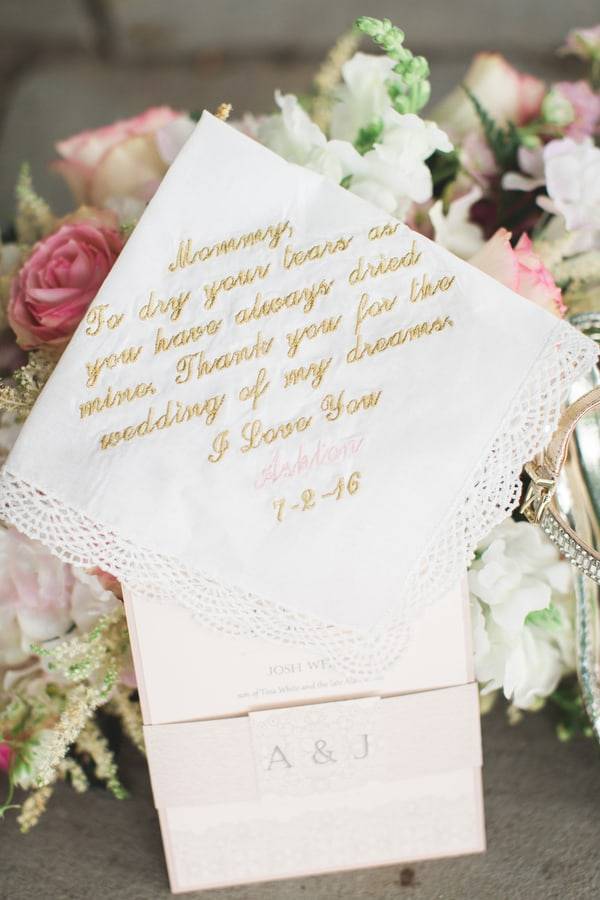 Mommy,
To dry your tears as
you have always dried
mine. Thank you for the
wedding of my dreams.
I Love You
Ashton
7-2-16
JOSH WE
son of Tina White and the late Alan
A & J